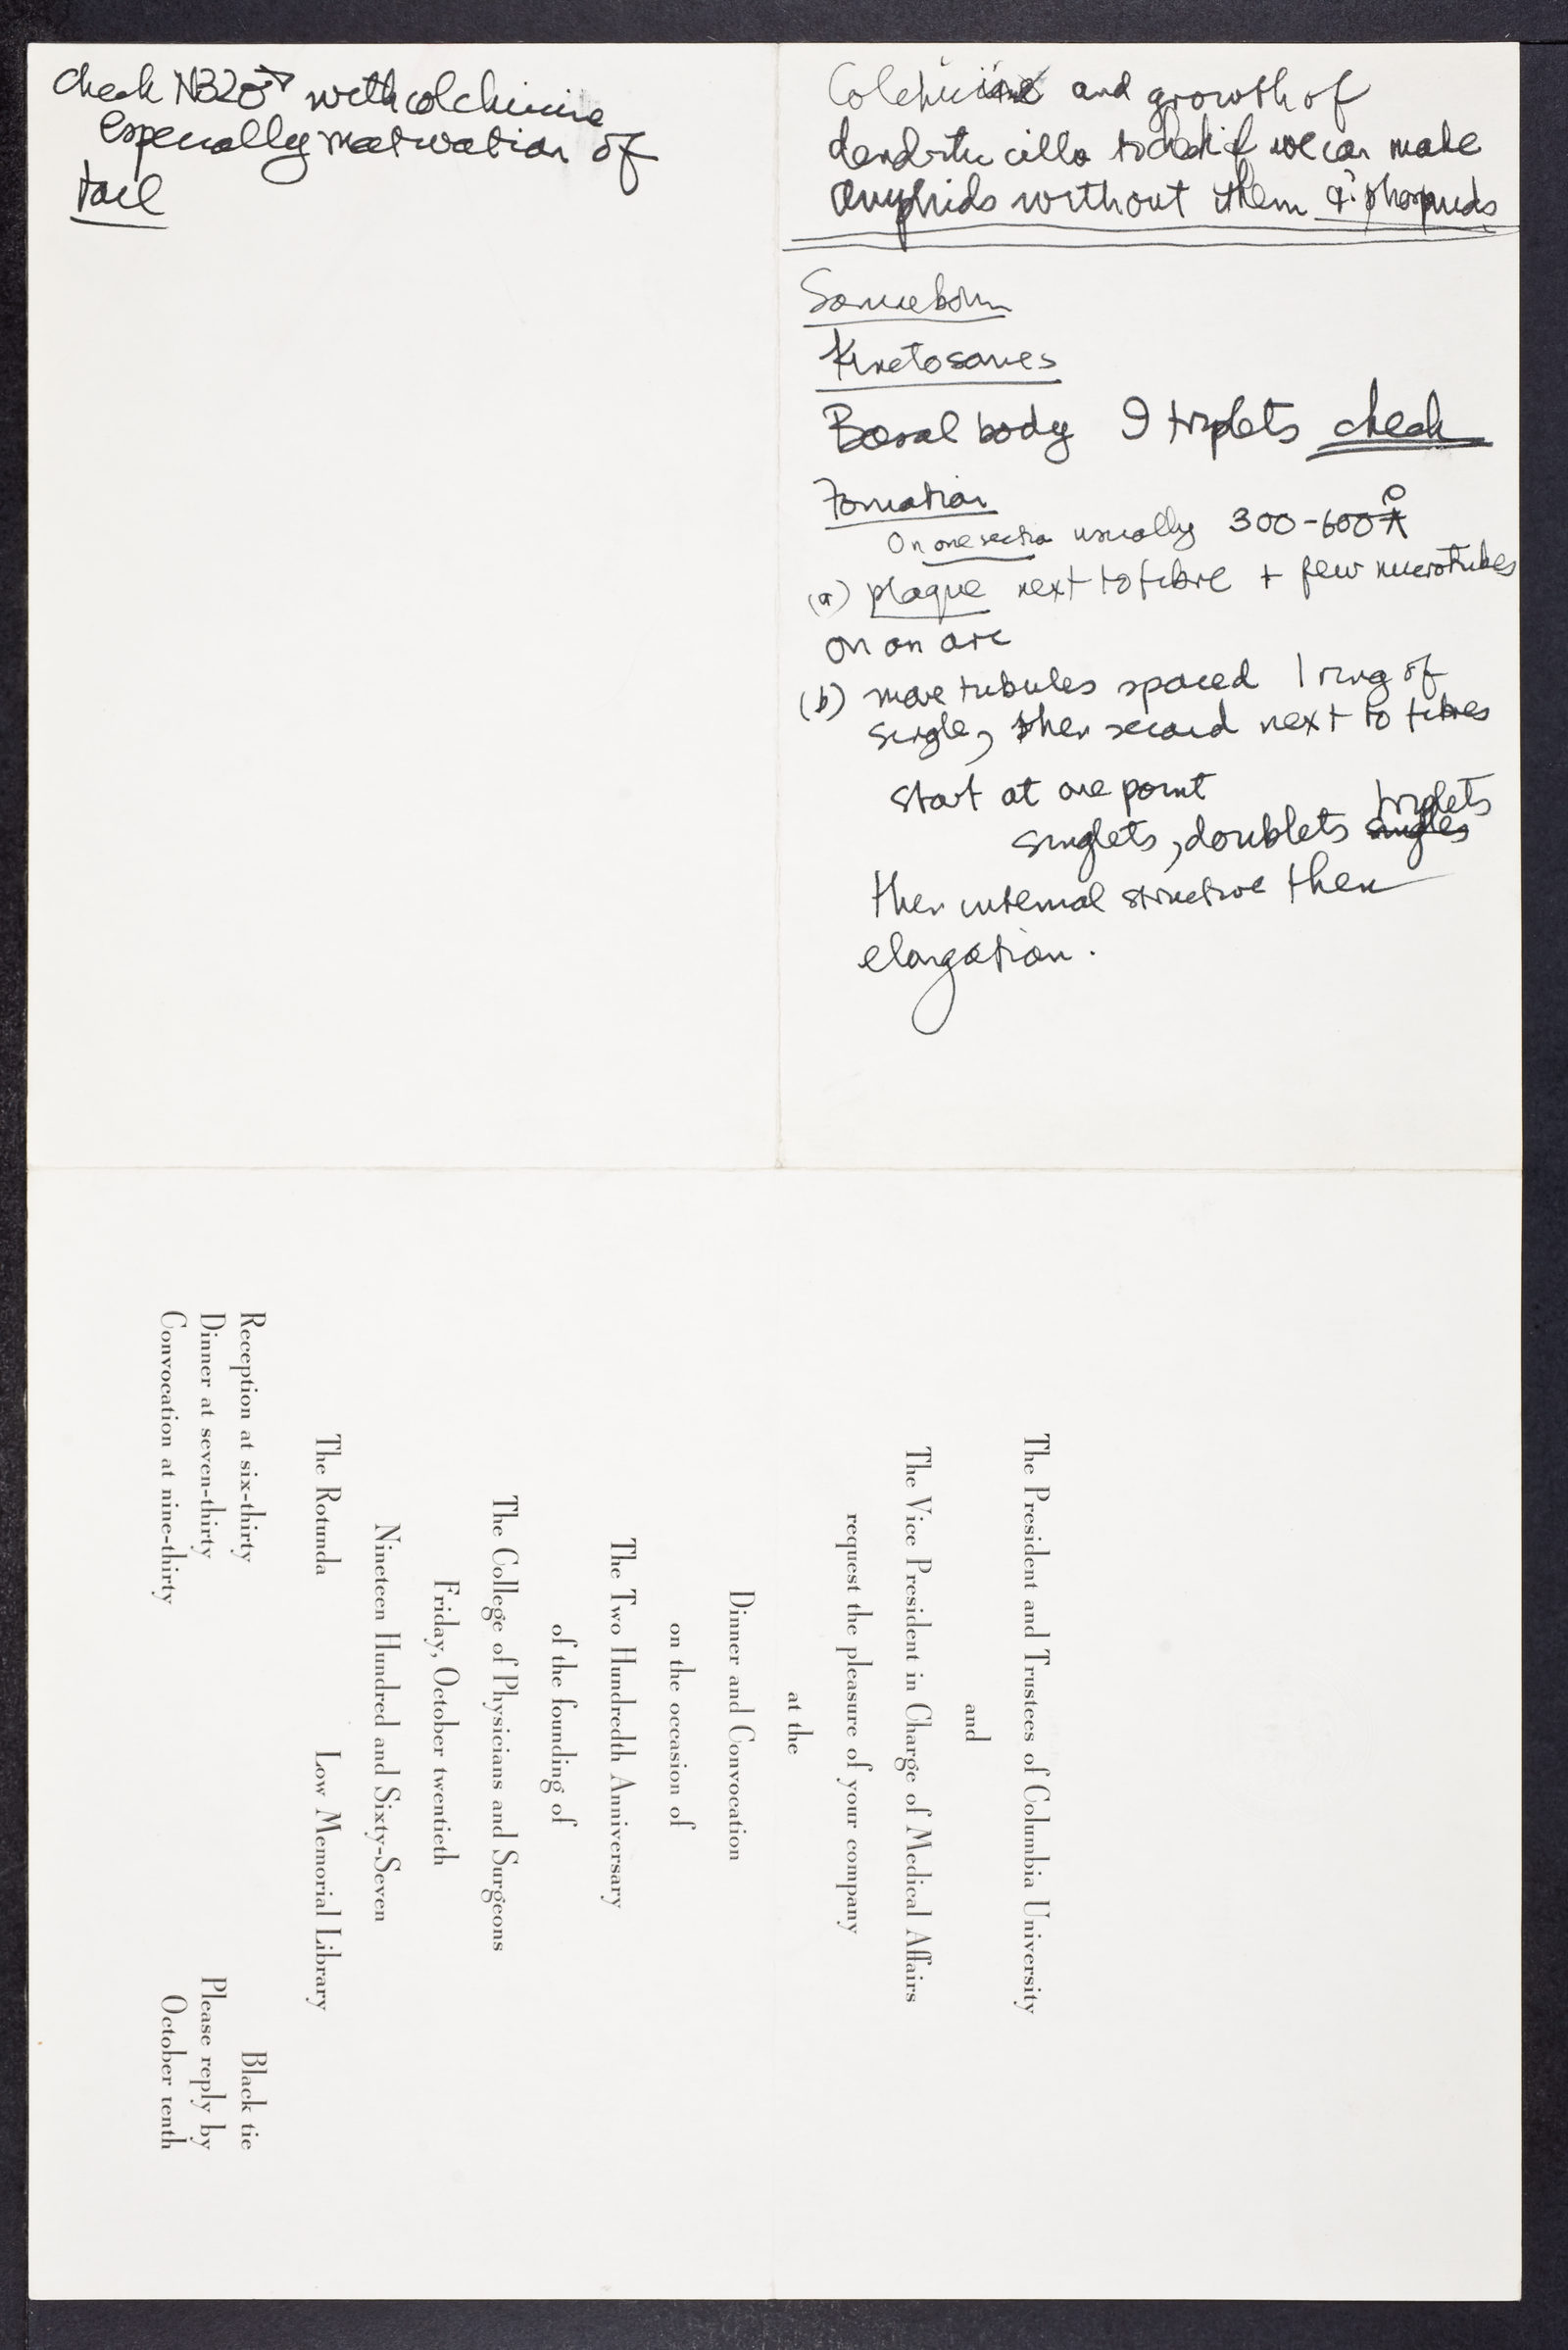 Check N320♂ with colchicine
especially maturation of
tail
Colchicine and growth of
dendritic cilla to check if we can make
amphids without them & ? phasmids
Sonneborn
Kinetosomes
Basal body 9 triplets check
Formation
On one section usually 300-600Å
(a) plaque next to fibre + few microtubes
on an arc
(b) more tubules spaced 1 ring of
single, then second next to fibres
start at one point
singlets, doublets triplets
then internal structure then
elongation.
The President and Trustees of Columbia University
and
The Vice President in Charge of Medical Affairs
request the pleasure of your company
at the
Dinner and Convocation
on the occasion of
The Two Hundredth Anniversary
of the founding of
The College of Physicians and Surgeons
Friday, October twentieth
Nineteen Hundred and Sixty-Seven
The Rotunda Low Memorial Library
Reception at six-thirty Black tie
Dinner at seven-thirty Please reply by
Convocation at nine-thirty October tenth